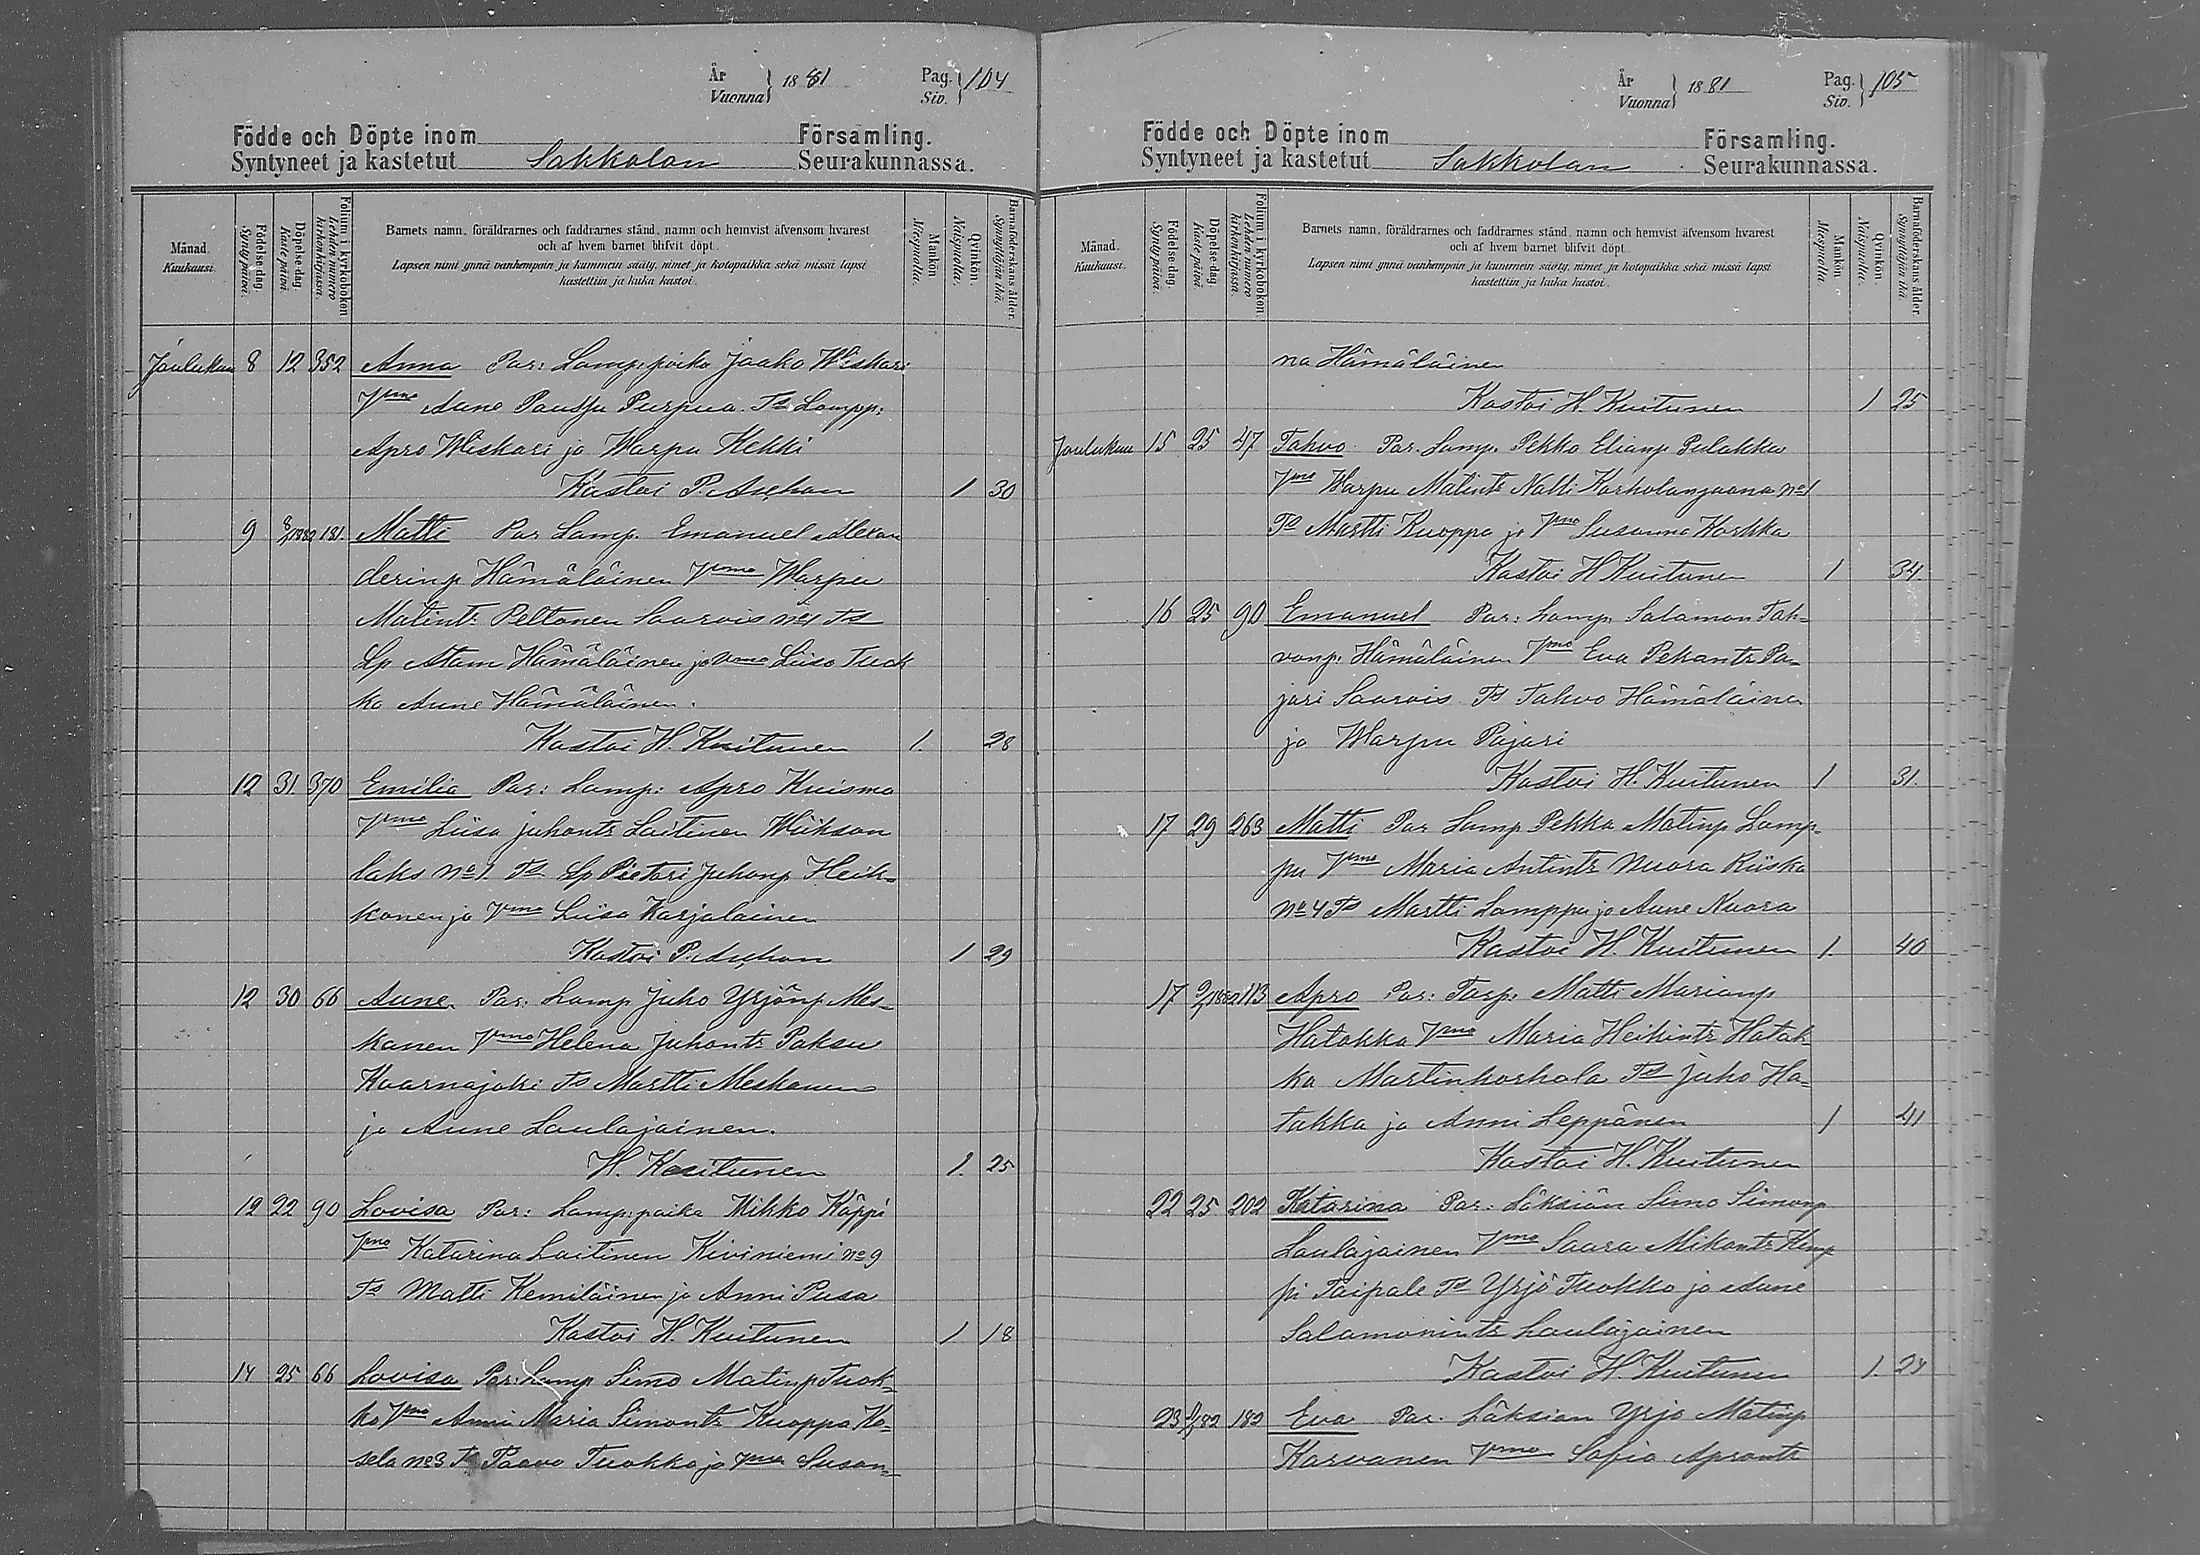 År
Vuonna } 1881
Pag.
Siv. } 104
Födde och Döpte inom Församling.
Syntyneet ja kastetut Sakkolan Seurakunnassa.
Månad.
Kuukausi.
Födelse dag.
Synty päivä.
Döpelse dag.
Kaste päivä
Folium i kyrkoboken
Lehden numero
kirkonkirjassa.
Barnets namn, föräldrarnes och faddrarnes stånd, namn och hemvist äfvensom hvarest
och af hvem barnet blifvit döpt.
Lapsen nimi ynnä vanhempain ja kummein sääty, nimet ja kotopaikka sekä missä lapsi
kastettiin ja kuka kastoi.
Mankön
Miespuolta.
Qvinkön.
Naispuolta.
Barnaföderskans ålder.
Synnyttäjän ikä.
Joulukuu 8 12 352 Anna Par: Lamp:poika Jaako Wiskari
Vmo Anne Paulsp Purpua Ts Lampp:
Apro Wiskari ja Warpu Kekki
Kastoi P. Aschan 1 30
9 8/1 1882 181. Matti Par Lamp. Emanuel Alexan
derinp Hämäläinen Vmo Warpu
Matintr Peltonen Saarois No1 Ts
Lp Atam Hämäläinen ja Vmo Liisa Tuok
ko Anne Hämäläinen.
Kastoi H. Kuitunen 1. 28
12 31. 370 Emilia Par: Lamp: Apro Kuisma
Vmo Liisa Juhontr Laitinen Wiikson
laks No1. Ts Lp Pietari Juhonp Heik-
konen ja Vmo Liisa Karjalainen
Kastoi P. Aschan 1 29
12 30 66 Aune. Par: Lamp Juho Yrjönp Mes-
kanen Vmo Helena Juhontr Paksu
Haarnajoki Ts Martti Meskanen
ja Aune Laulajainen.
H. Kuitunen 1. 25
12 22 90 Lovisa Par: Lamp:poika Mikko Käppi
Vmo Katarina Laitinen Kiviniemi No9
Ts Matti Kemiläinen ja Anni Pusa
Kastoi H. Kuitunen 1 18
14 25 66 Lovisa Par: Lamp Simo Matinp Tuok-
ko Vmo Anni Maria Simontr Kuoppa Ko-
sela No3 Ts Paavo Tuokko ja Vmo Susan-
År
Vuonna } 1881
Pag.
Siv. } 105
Födde och Döpte inom Församling.
Syntyneet ja kastetut Sakkolan Seurakunnassa.
Månad.
Kuukausi.
Födelse dag.
Synty päivä.
Döpelse dag.
Kaste päivä
Folium i kyrkoboken
Lehden numero
kirkonkirjassa.
Barnets namn, föräldrarnes och faddrarnes stånd, namn och hemvist äfvensom hvarest
och af hvem barnet blifvit döpt.
Lapsen nimi ynnä vanhempain ja kummein sääty, nimet ja kotopaikka sekä missä lapsi
kastettiin ja kuka kastoi.
Mankön
Miespuolta.
Qvinkön.
Naispuolta.
Barnaföderskans ålder.
Synnyttäjän ikä.
na Hämäläinen
Kastoi H. Kuitunen 1 25
Joulukuu 15 25 47 Tahvo. Par. Lamp. Pekko Elianp Pulakka
Vmo Warpu Matintr Nalli Karholanjaana No1
Ts Martti Kuoppa ja Vmo Susanna Korkka
Kastoi H Kuitunen 1 34.
16 25 90 Emanuel Par: Lamp. Salamon Tah-
vonp. Hämäläinen Vmo Eva Pekantr Pa-
jari Saarois Ts Tahvo Hämäläinen
ja Warpu Pajari
Kastoi H. Kuitunen 1 31.
17 29 263 Matti Par Lamp Pekka Matinp Lamp-
pu Vmo Maria Antintr Nuora Riiska
No 4 Ts Martti Lamppu ja Anne Nuora
Kastoi H. Kuitunen 1. 40
17 2/1 1882 113 Apro Par: Torp: Matti Marianp
Hatakka Vmo Maria Heikintr Hatak-
ka Martinkoskola Ts Juho Ha-
takka ja Anni Leppänen 1 41
Kastoi H. Kuitunen
22 25 202 Katarina Par: Läksiän Simo Simonp
Laulajainen Vmo Saara Mikontr Kemp
pi Taipale Ts Yrjö Tuokko ja Anne
Salamonintr Laulajainen
Kastoi H. Kuitunen 1. 24
23 82 182 Eva Par. Läksian Yrjo Matinp
Karvanen Vmo Sofia Aprontr